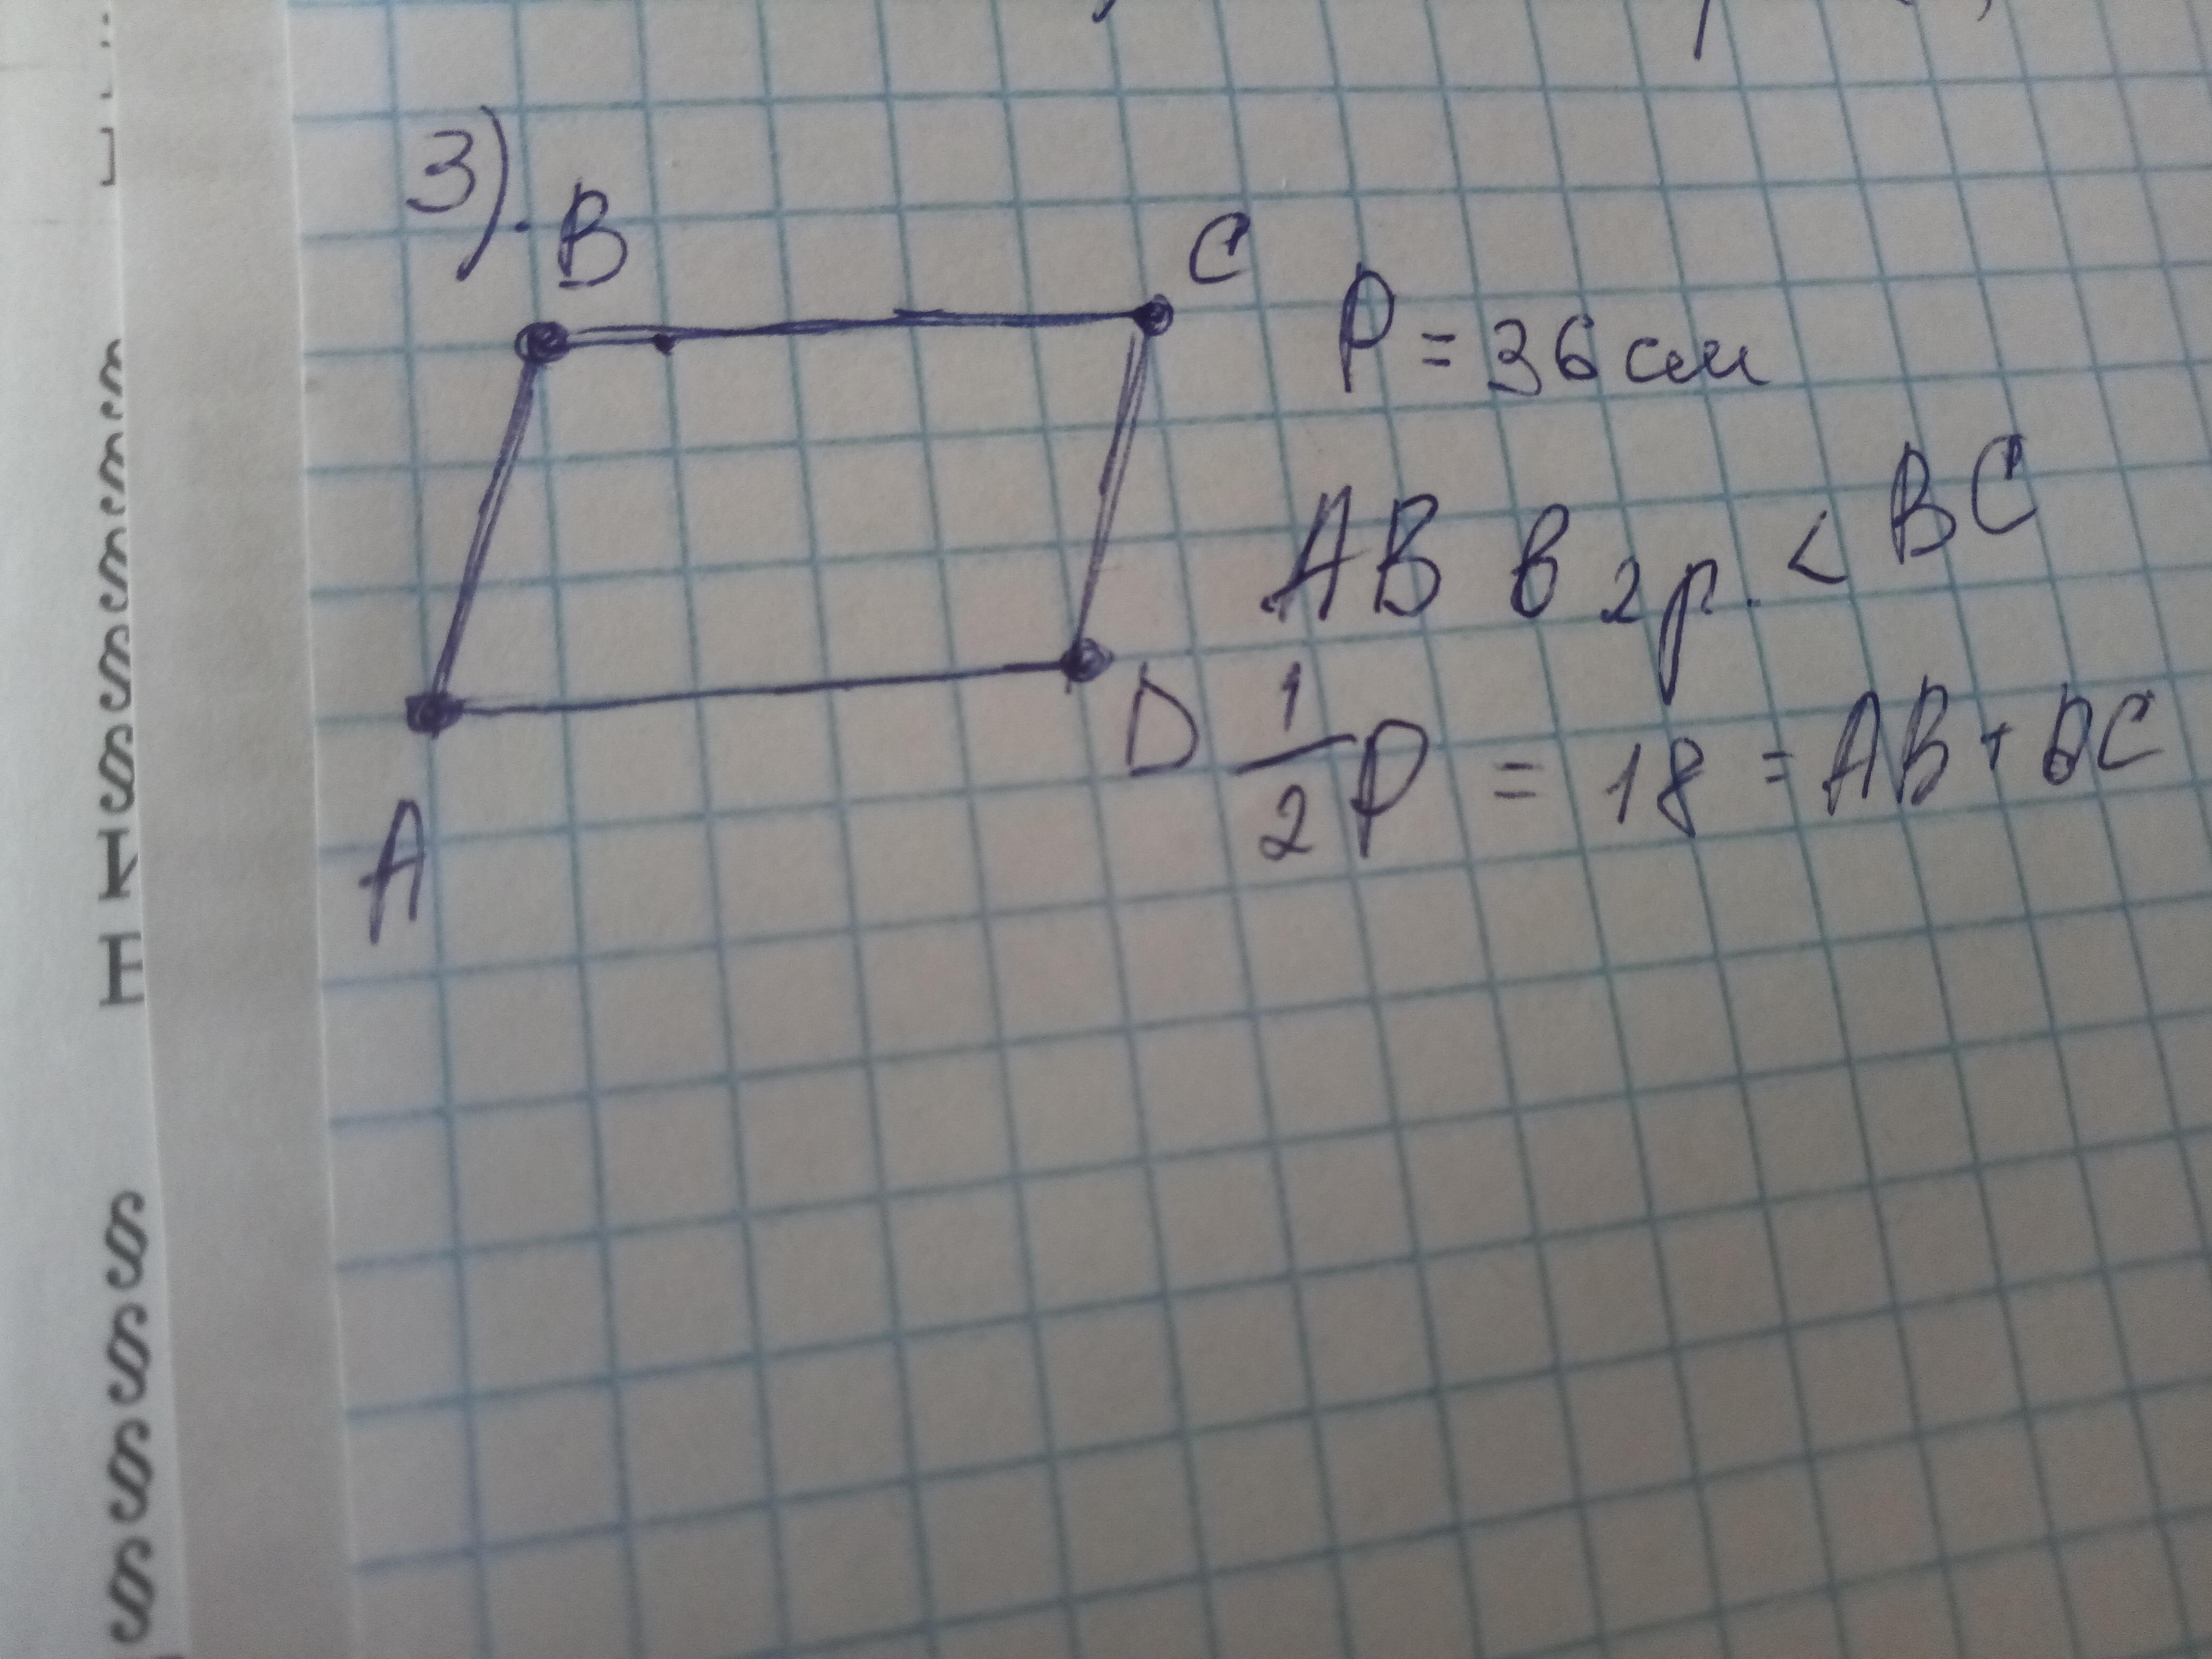 3).
B
C
P = 36 см
AB в 2 р. < BC
D
1/2 P = 18 = AB + BC
A